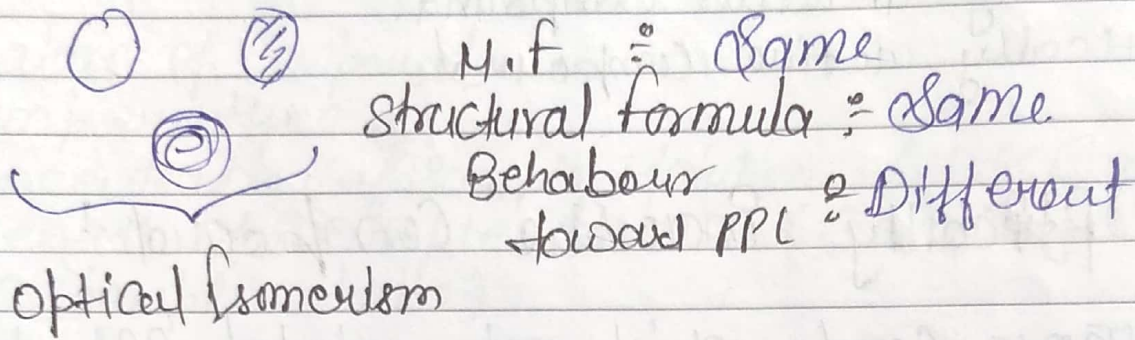 M.f ÷ Same
Structural formula ÷ Same
Behabour
toward PPL : Different
Optical Isomerism